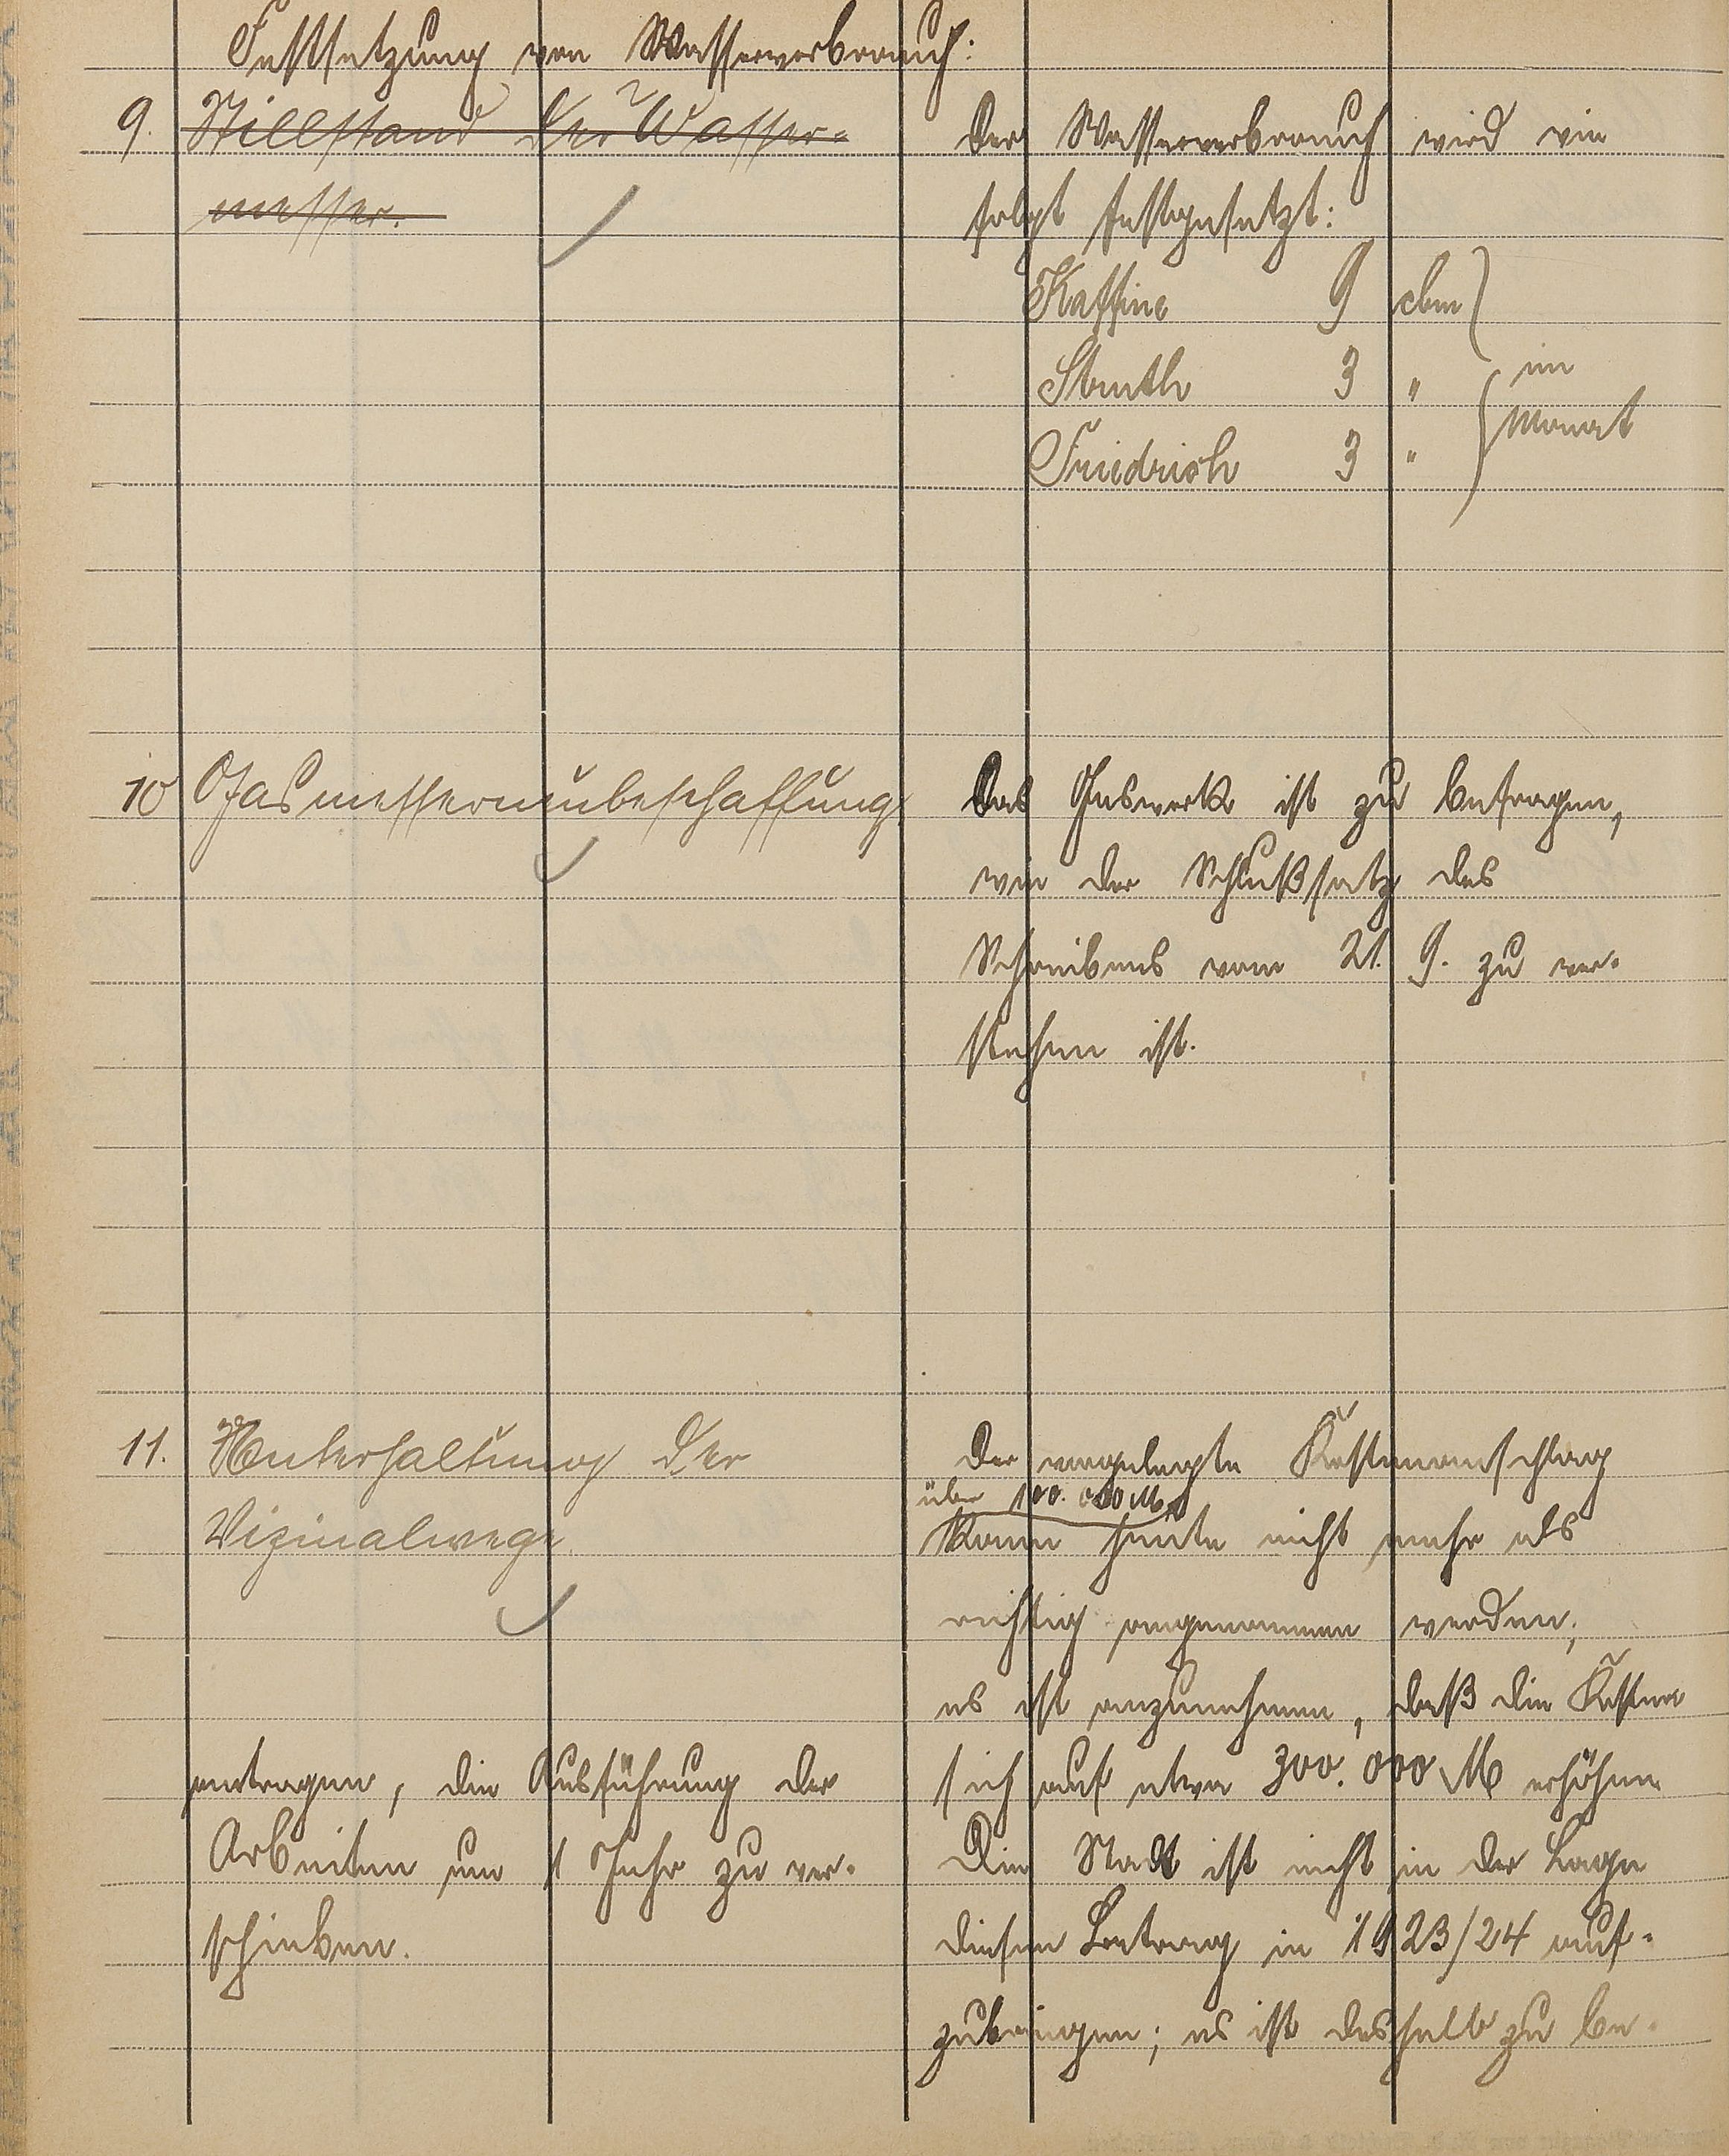 Festsetzung von Wasserverbrauch:
9. Stillstand der Wasser-
messer.
Der Wasserverbrauch wird wie
folgt festgesetzt:
Kaffine 9 cbm
Struth 3 " im
Monat
Friedrich 3 "
10 Gasmesserneubeschaffung
Das Gaswerk ist zu befragen,
wie der Schlußsatz des
Schreibens vom 21. 9. zu ver-
stehen ist.
11. Unterhaltung der
Vizinalwege.
Der vorgelegte Kostenanschlag
über 100.000 M
kann heute nicht mehr als
richtig angenommen werden;
es ist anzunehmen, daß die Kosten
sich auf etwa 300.000 M erhöhen
Die Stadt ist nicht in der Lage
diesen Betrag in 1923/24 auf-
zubringen; es ist deshalb zu be-
antragen, die Ausführung der
Arbeiten um 1 Jahr zu ver-
schieben.